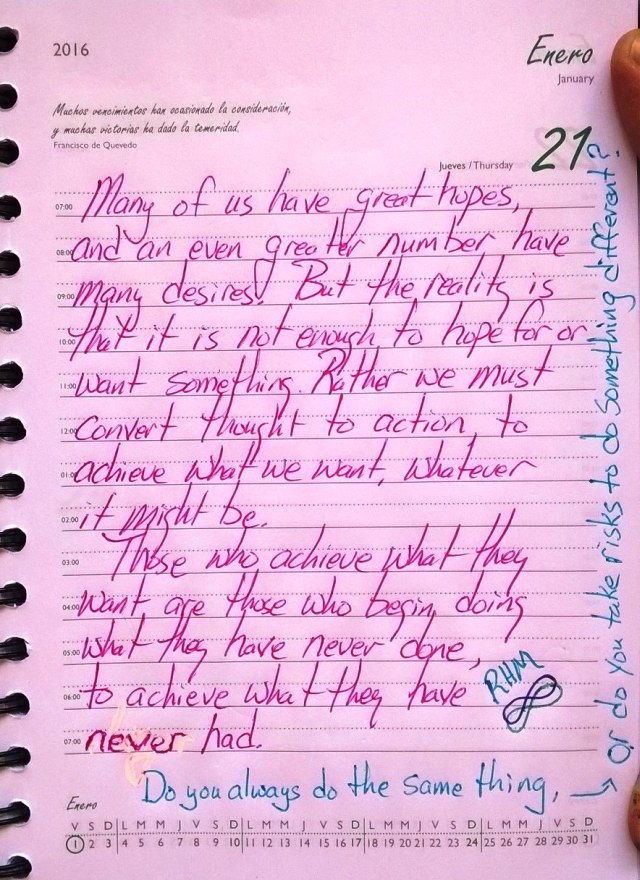 2016
Enero
January
Muchos vencimientos han ocasionado la consideración,
y muchas victorias ha dado la temeridad.
Francisco de Quevedo
Jueves / Thursday
21
07:00 Many of us have great hopes,
08:00 and an even greater number have
09:00 many desires! But the reality is
10:00 that it is not enough to hope for or
11:00 want something. Rather we must
12:00 convert thought to action, to
01:00 achieve what we want, whatever
02:00 it might be.
03:00 Those who achieve what they
04:00 want are those who begin doing
05:00 what they have never done,
06:00 to achieve what they have
07:00 never had.
RHM
Do you always do the same thing, →
or do you take risks to do something different?
Enero
V S D L M M J V S D L M M J V S D L M M J V S D L M M J V S D
1 2 3 4 5 6 7 8 9 10 11 12 13 14 15 16 17 18 19 20 21 22 23 24 25 26 27 28 29 30 31